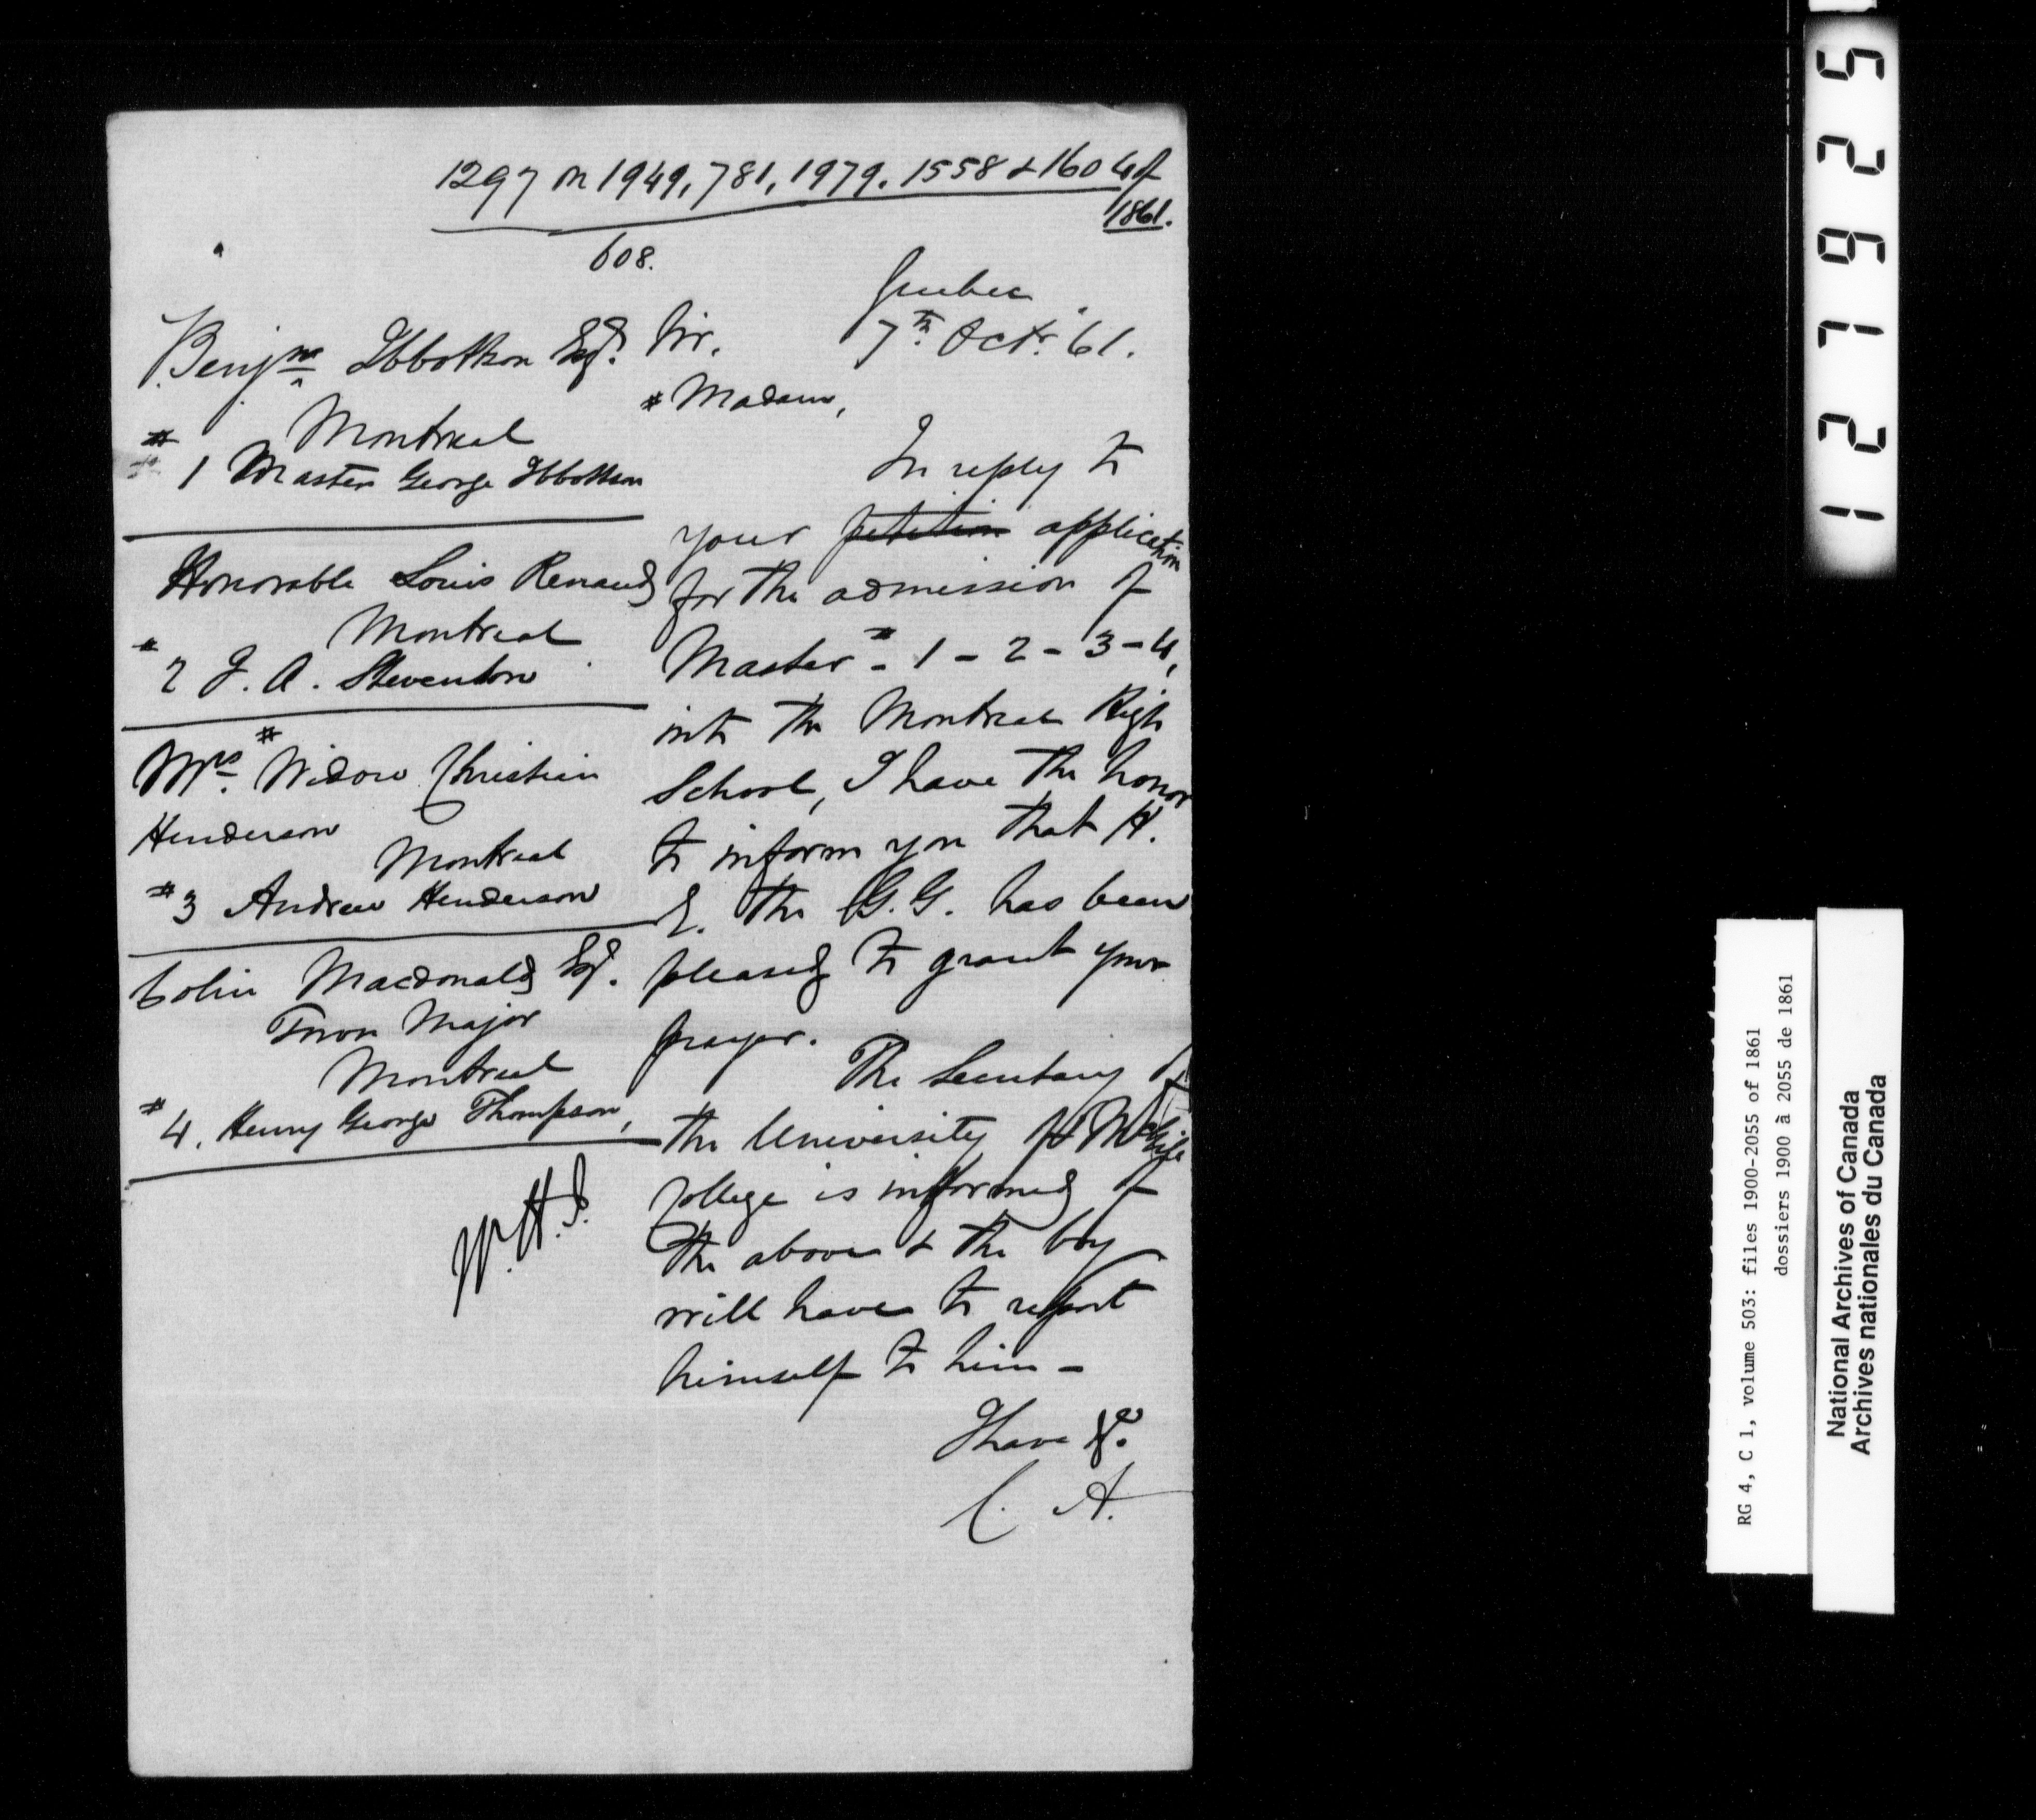 1297 on 1949, 781, 1979. 1558 & 1604 of
1861.
608.
Quebec
7th Octr. 61.
Benjn Ibbotson Esqr.
Montreal
# 1 Master George Ibbotson
Honorable Louis Renaud
Montreal
# 2 J. A. Stevenson
Mrs # Widow Christian
Henderson
Montreal
# 3 Andrew Henderson
Colin Macdonald Esqr.
Town Major
Montreal
# 4. Henry George Thompson,
Sir.
# Madam,
In reply to
your petition application
for the admission of
Master # - 1 - 2 - 3 - 4,
into the Montreal High
School, I have the honor
to inform you that H.
E. the G.G. has been
pleased to grant your
prayer.
The Secretary of
the University of McGill
College is informed of
the above & the boy
will have to report
himself to him -
I have &c.
C. A.
127925
RG 4, C 1, volume 503: files 1900-2055 of 1861
dossiers 1900 à 2055 de 1861
National Archives of Canada
Archives nationales du Canada